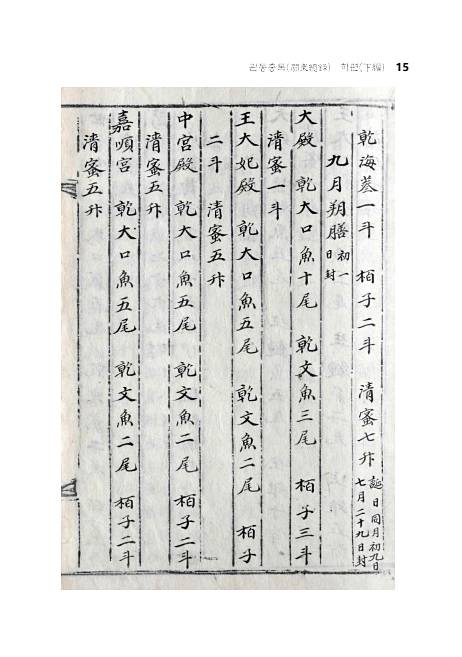 관동총록(關東總錄) 하편(下編) 15
乾海蔘一斗 栢子二斗 淸蜜七升 誕日同月初九日 七月二十九日封
九月朔膳 初一日封
大殿 乾大口魚十尾 乾文魚三尾 栢子三斗
淸蜜一斗
王大妃殿 乾大口魚五尾 乾文魚二尾 栢子
二斗 淸蜜五升
中宮殿 乾大口魚五尾 乾文魚二尾 栢子二斗
淸蜜五升
嘉順宮 乾大口魚五尾 乾文魚二尾 栢子二斗
淸蜜五升